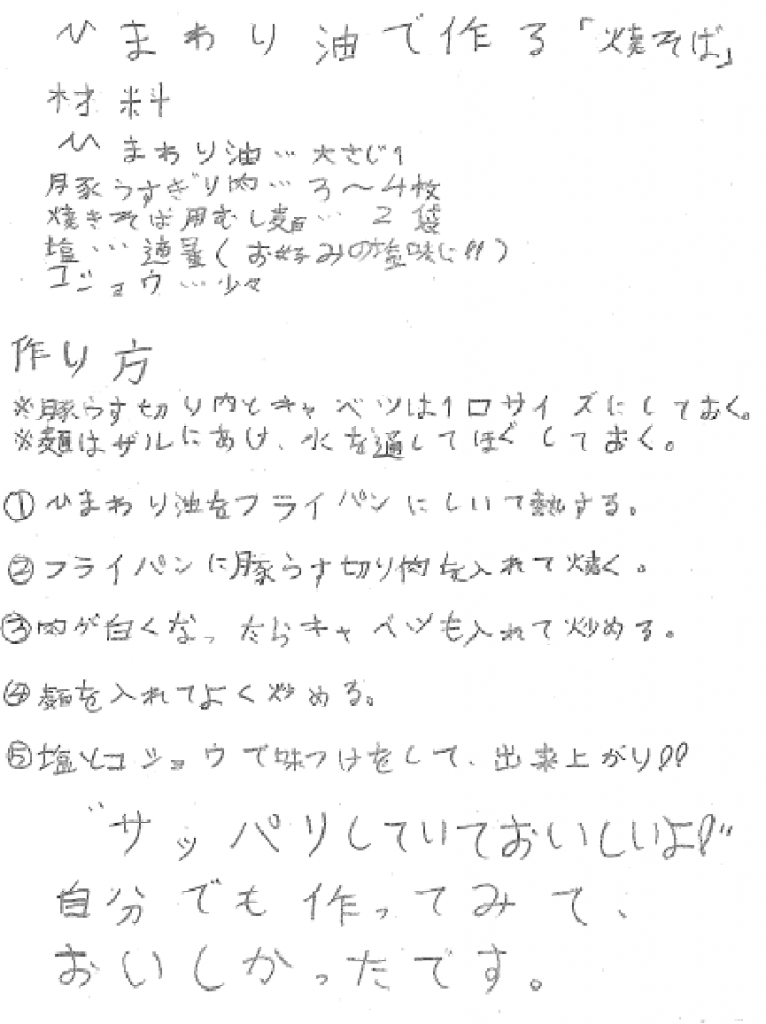 ひまわり油で作る「焼そば」
材料
ひまわり油…大さじ1
豚うすぎり肉…3〜4枚
焼きそば用むし麺…2袋
塩…適量(お好みの塩味に!!)
コショウ…少々
作り方
※豚うす切り肉とキャベツは1口サイズにしておく。
※麺はザルにあけ、水を通してほぐしておく。
①ひまわり油をフライパンにしいて熱する。
②フライパンに豚うす切り肉を入れて焼く。
③肉が白くなったらキャベツも入れて炒める。
④麺を入れてよく炒める。
⑤塩とコショウで味つけをして、出来上がり!!
"サッパリしていておいしいよ!!"
自分でも作ってみて、
おいしかったです。